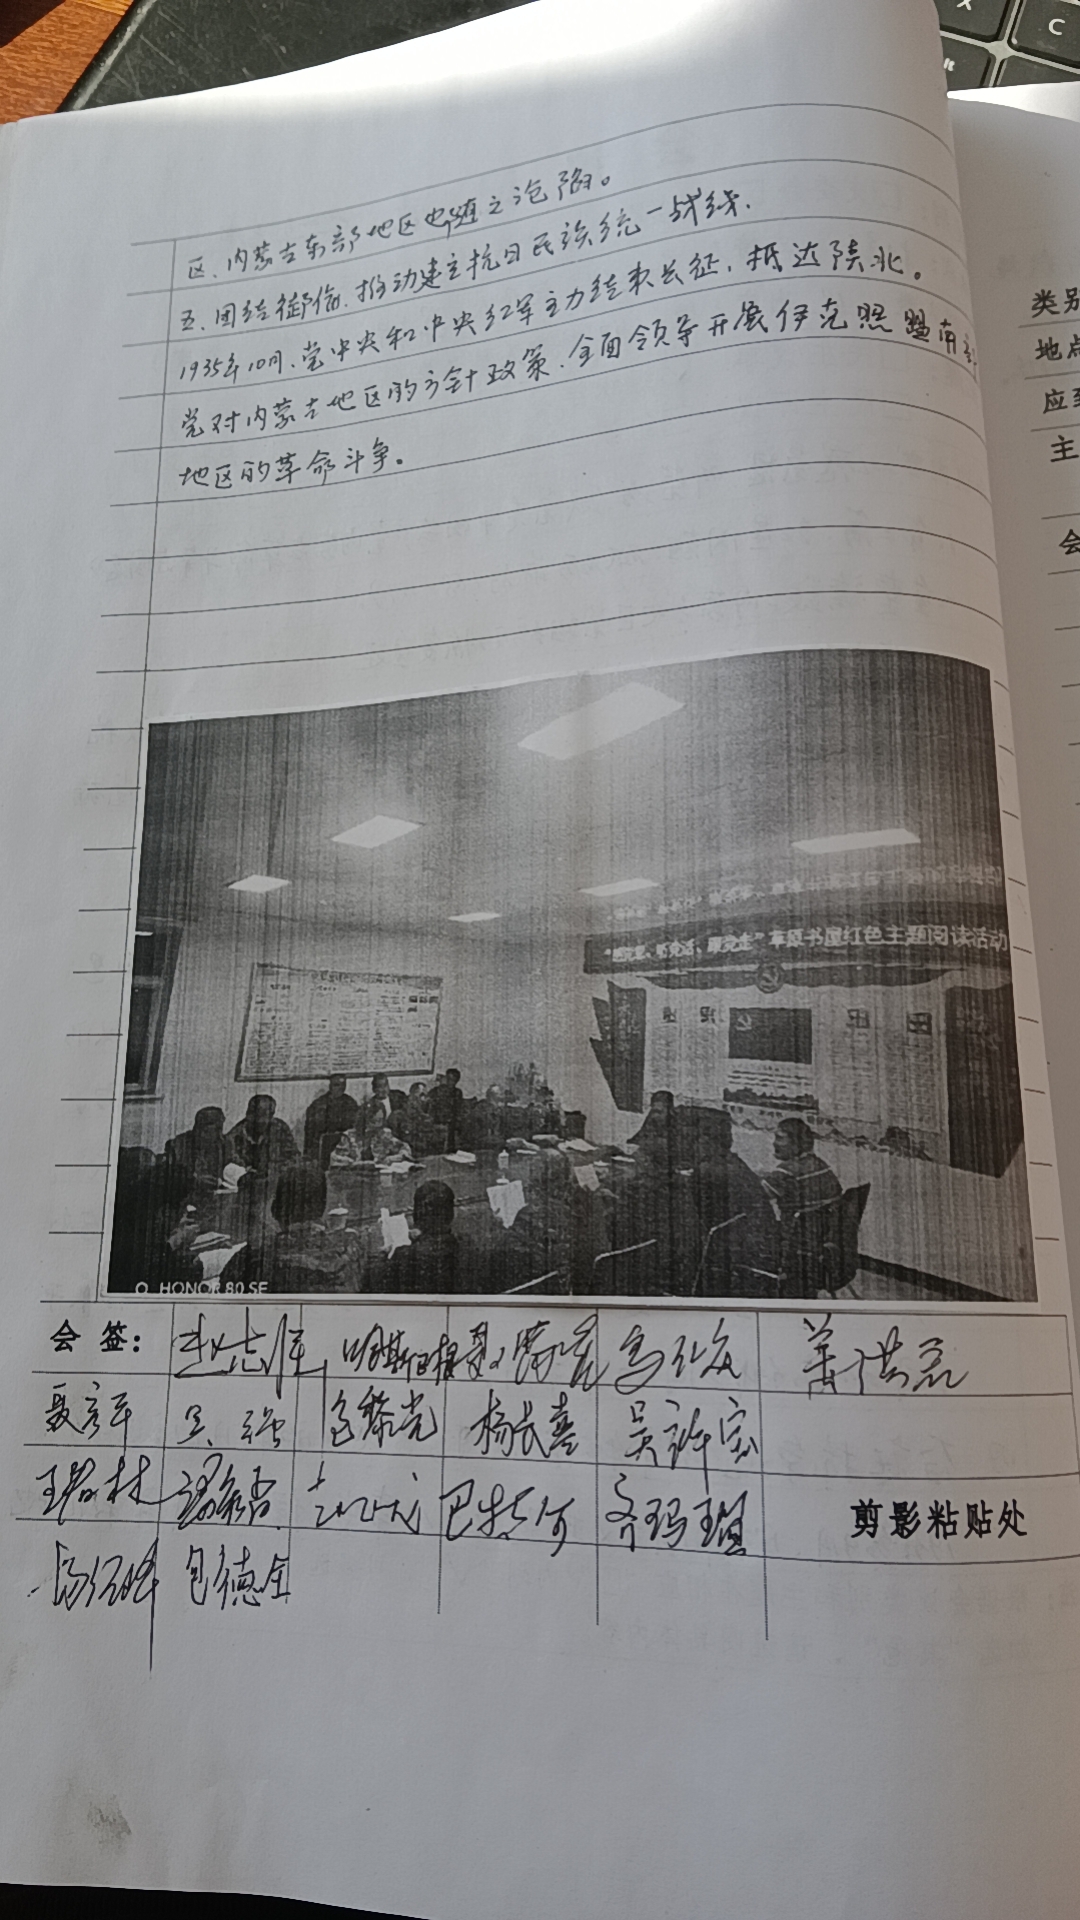 区、内蒙古东部地区也随之沦陷。
五、团结御侮、推动建立抗日民族统一战线.
1935年10月、党中央和中央红军主力结束长征、抵达陕北。
党对内蒙古地区的方针政策、全面领导开展伊克昭盟南部
地区的革命斗争。
"感党恩、听党话、跟党走"草原书屋红色主题阅读活动
HONOR 80 SE
会 签:
赵志 乌 萧洪磊
聂彦军 吴强 包黎光 杨长喜 吴许宝
王君林 巴特 齐玛
包德全
剪影粘贴处
类别
地点
应到
主
会